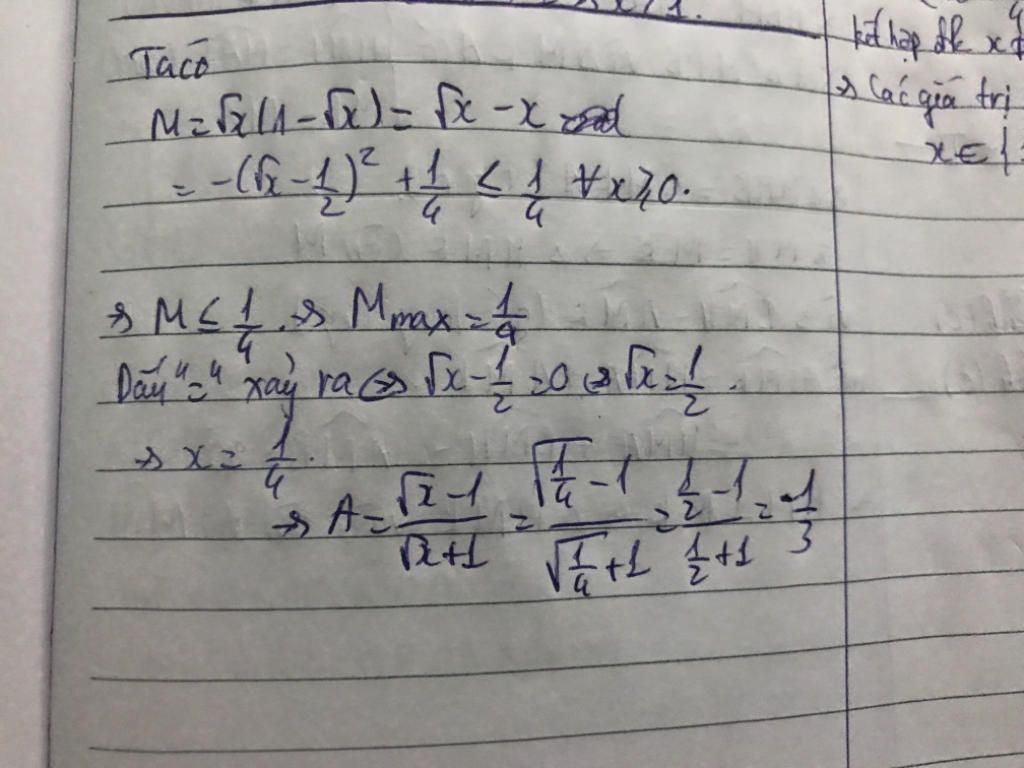 Ta có
M = √x(1 - √x) = √x - x
= -(√x - 1/2)² + 1/4 ≤ 1/4 ∀x ≥ 0.
→ M ≤ 1/4. → Mmax = 1/4
Dấu "=" xảy ra ⇔ √x - 1/2 = 0 ⇔ √x = 1/2.
→ x = 1/4.
→ A = (√x - 1)/(√x + 1) = (√(1/4) - 1)/(√(1/4) + 1) = (1/2 - 1)/(1/2 + 1) = -1/3
kết hợp đk x
→ Các giá trị
x ∈ {